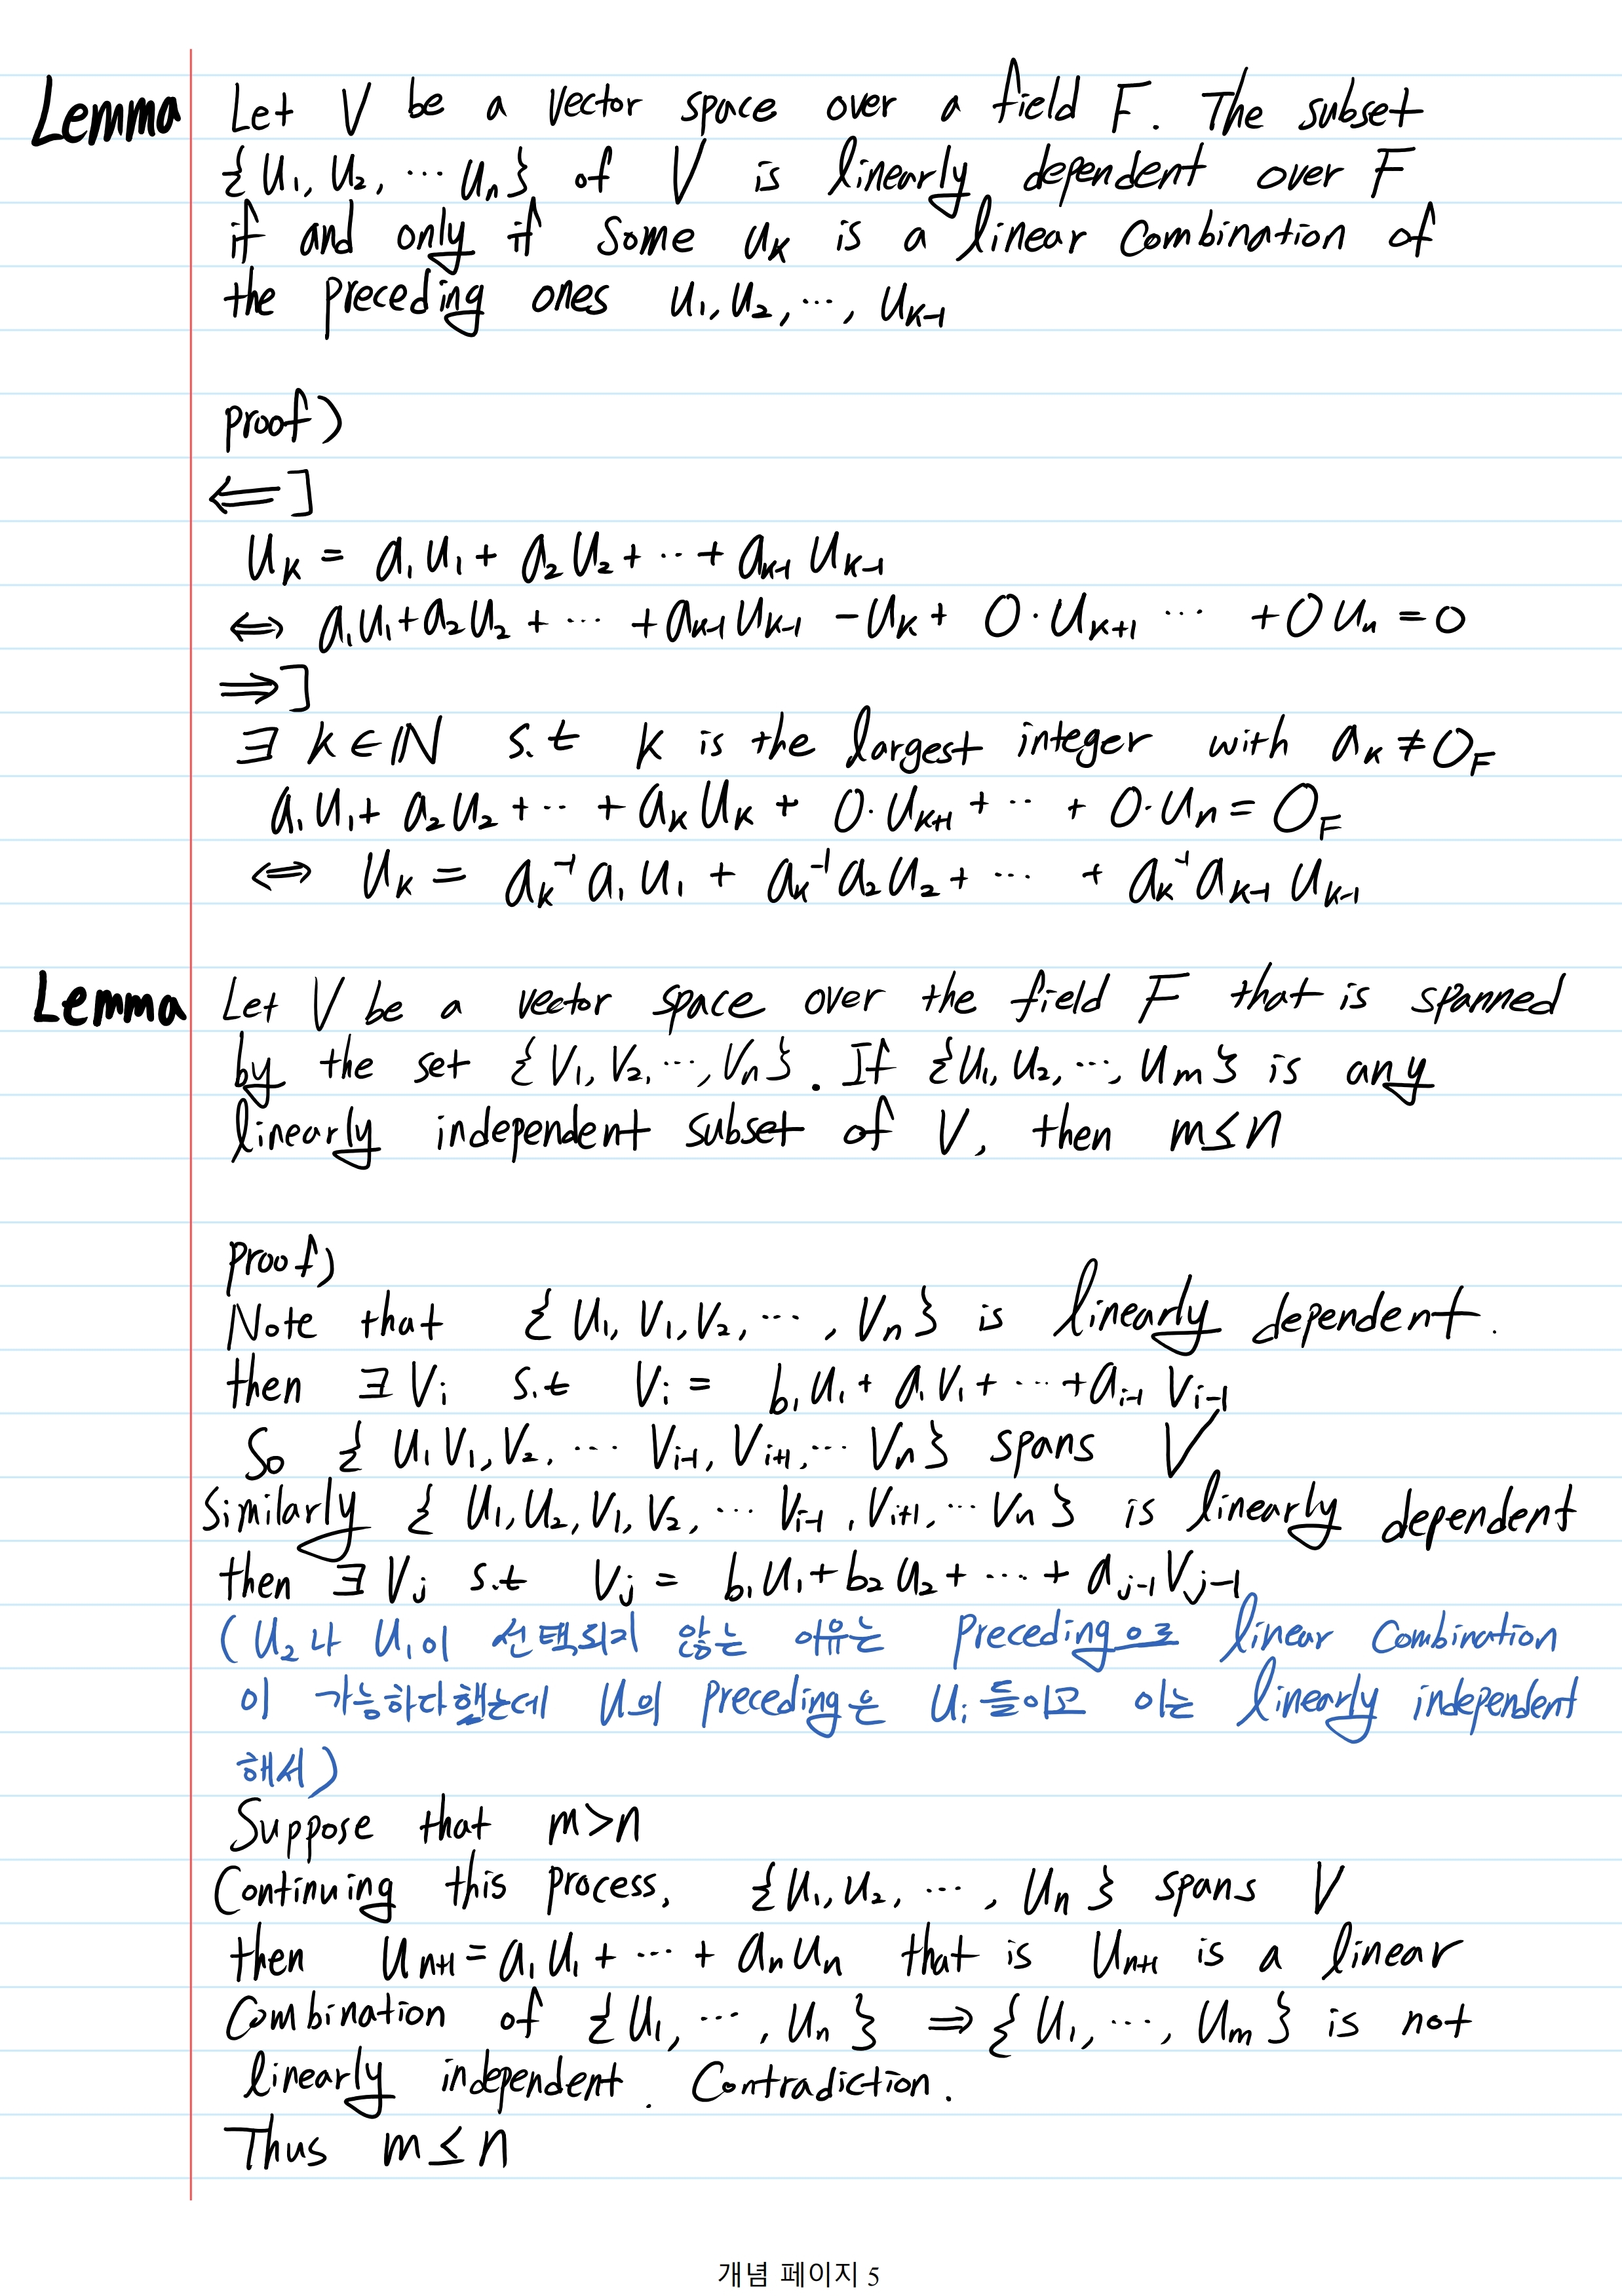 Lemma Let V be a vector space over a field F. The subset
{u₁, u₂, ⋯ uₙ} of V is linearly dependent over F
if and only if some uₖ is a linear combination of
the preceding ones u₁, u₂, ⋯, uₖ₋₁
proof)
⇐]
uₖ = a₁u₁ + a₂u₂ + ⋯ + aₖ₋₁uₖ₋₁
⇔ a₁u₁ + a₂u₂ + ⋯ + aₖ₋₁uₖ₋₁ - uₖ + 0·uₖ₊₁ ⋯ + 0uₙ = 0
⇒]
∃ k∈ℕ s.t k is the largest integer with aₖ ≠ 0_F
a₁u₁ + a₂u₂ + ⋯ + aₖuₖ + 0·uₖ₊₁ + ⋯ + 0·uₙ = 0_F
⇔ uₖ = aₖ⁻¹a₁u₁ + aₖ⁻¹a₂u₂ + ⋯ + aₖ⁻¹aₖ₋₁uₖ₋₁
Lemma Let V be a vector space over the field F that is spanned
by the set {v₁, v₂, ⋯, vₙ}. If {u₁, u₂, ⋯, uₘ} is any
linearly independent subset of V, then m≤n
proof)
Note that {u₁, v₁, v₂, ⋯, vₙ} is linearly dependent.
then ∃ vᵢ s.t vᵢ = b₁u₁ + a₁v₁ + ⋯ + aᵢ₋₁ vᵢ₋₁
So {u₁ v₁, v₂, ⋯ vᵢ₋₁, vᵢ₊₁, ⋯ vₙ} spans V
Similarly {u₁, u₂, v₁, v₂, ⋯ vᵢ₋₁, vᵢ₊₁, ⋯ vₙ} is linearly dependent
then ∃ vⱼ s.t vⱼ = b₁u₁ + b₂u₂ + ⋯ + aⱼ₋₁vⱼ₋₁
(u₂나 u₁이 선택되지 않는 이유는 preceding으로 linear combination
이 가능하다했는데 u의 preceding은 uᵢ들이고 이는 linearly independent
해서)
Suppose that m>n
Continuing this process, {u₁, u₂, ⋯, uₙ} spans V
then uₙ₊₁ = a₁u₁ + ⋯ + aₙuₙ that is uₙ₊₁ is a linear
Combination of {u₁, ⋯, uₙ} ⇒ {u₁, ⋯, uₘ} is not
linearly independent. Contradiction.
Thus m ≤ n
개념 페이지 5